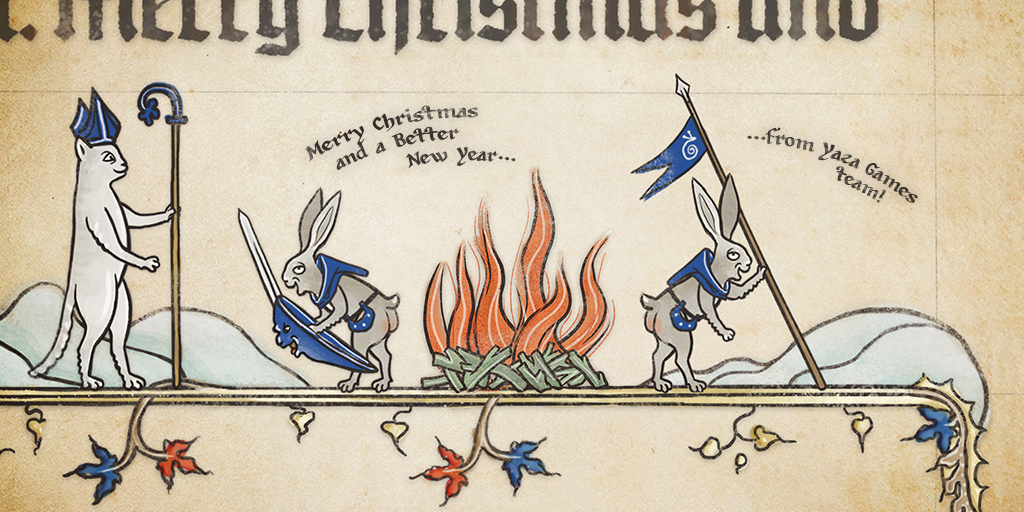 r. Merry Christmas and
Merry Christmas
and a Better
New Year...
...from Yaza Games
team!